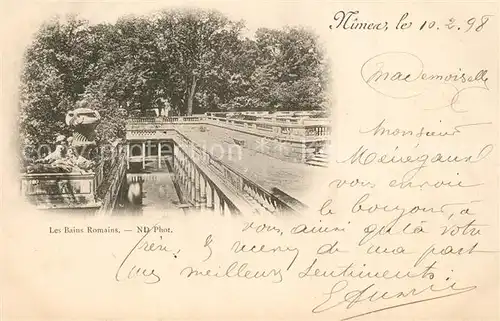 Nîmes, le 10.2.98
Mademoiselle
Monsieur
Ménégaud
vous envoie
le bonjour, à
vous, ainsi qu'à votre
frère, & recevez de ma part
mes meilleurs sentiments
Les Bains Romains. — ND Phot.